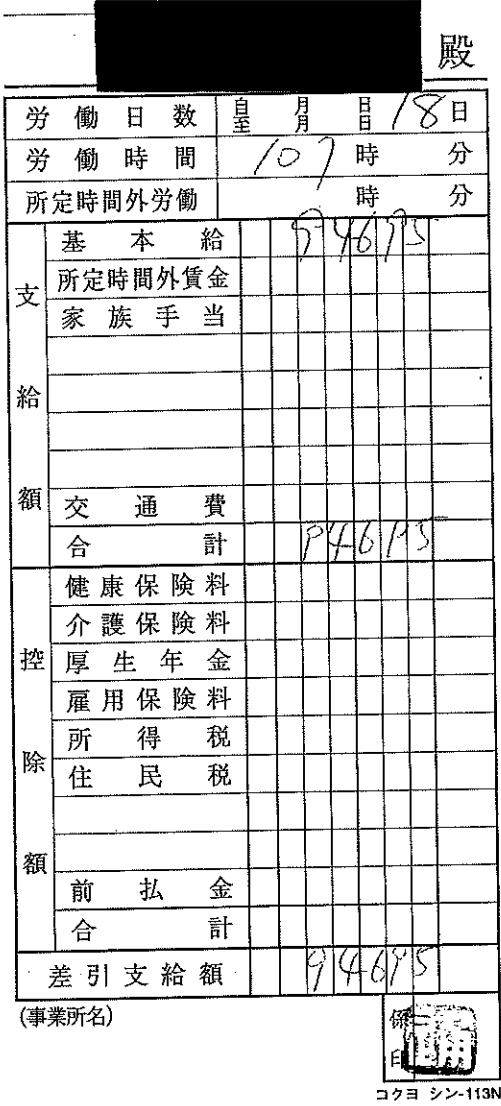 殿
労働日数 自 月 日 至 月 日 18日
労働時間 107時 分
所定時間外労働 時 分
支給額
基本給 94695
所定時間外賃金
家族手当
交通費
合計 94695
控除額
健康保険料
介護保険料
厚生年金
雇用保険料
所得税
住民税
前払金
合計
差引支給額 94695
(事業所名)
係印
コクヨ シン-113N